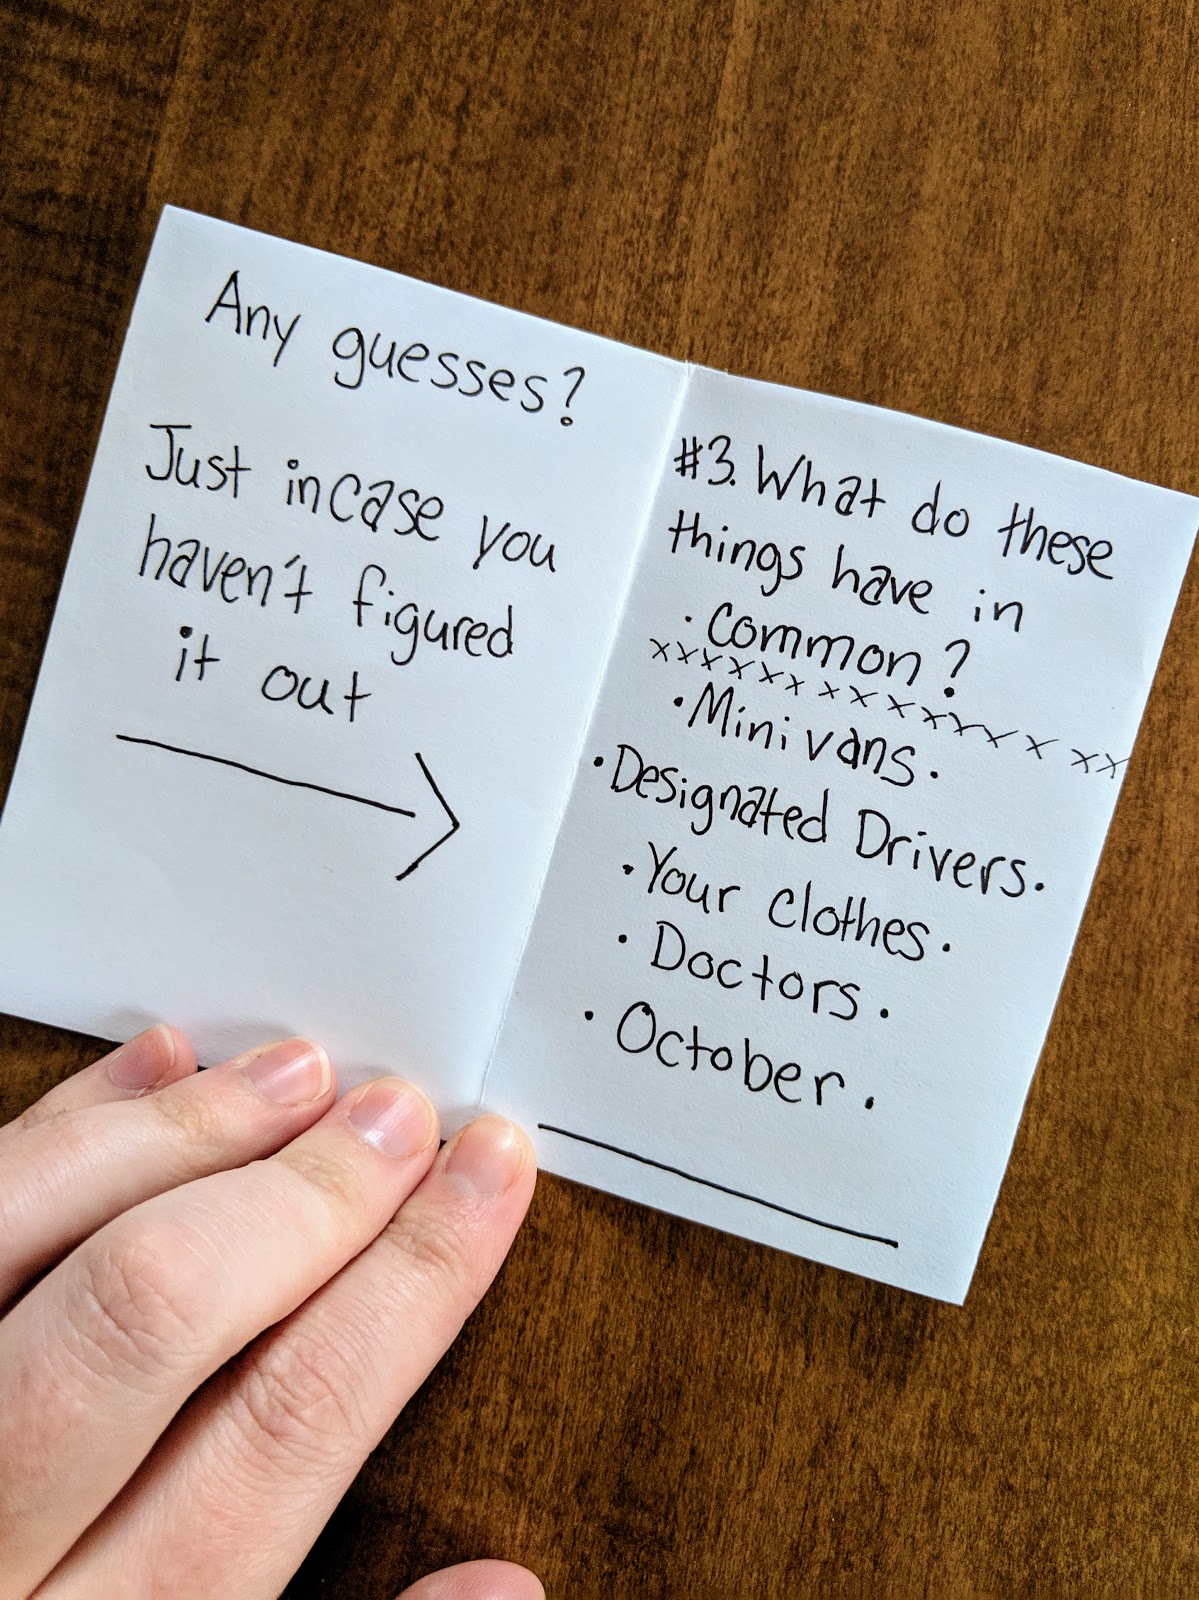 Any guesses?
Just incase you
haven't figured
it out
#3. What do these
things have in
· common?
xxxxxxxxxxxxxxxx
· Minivans.
· Designated Drivers.
· Your clothes.
· Doctors.
· October.